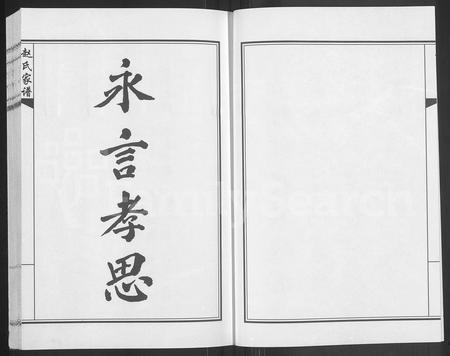 赵氏家谱
永言孝思
FamilySearch